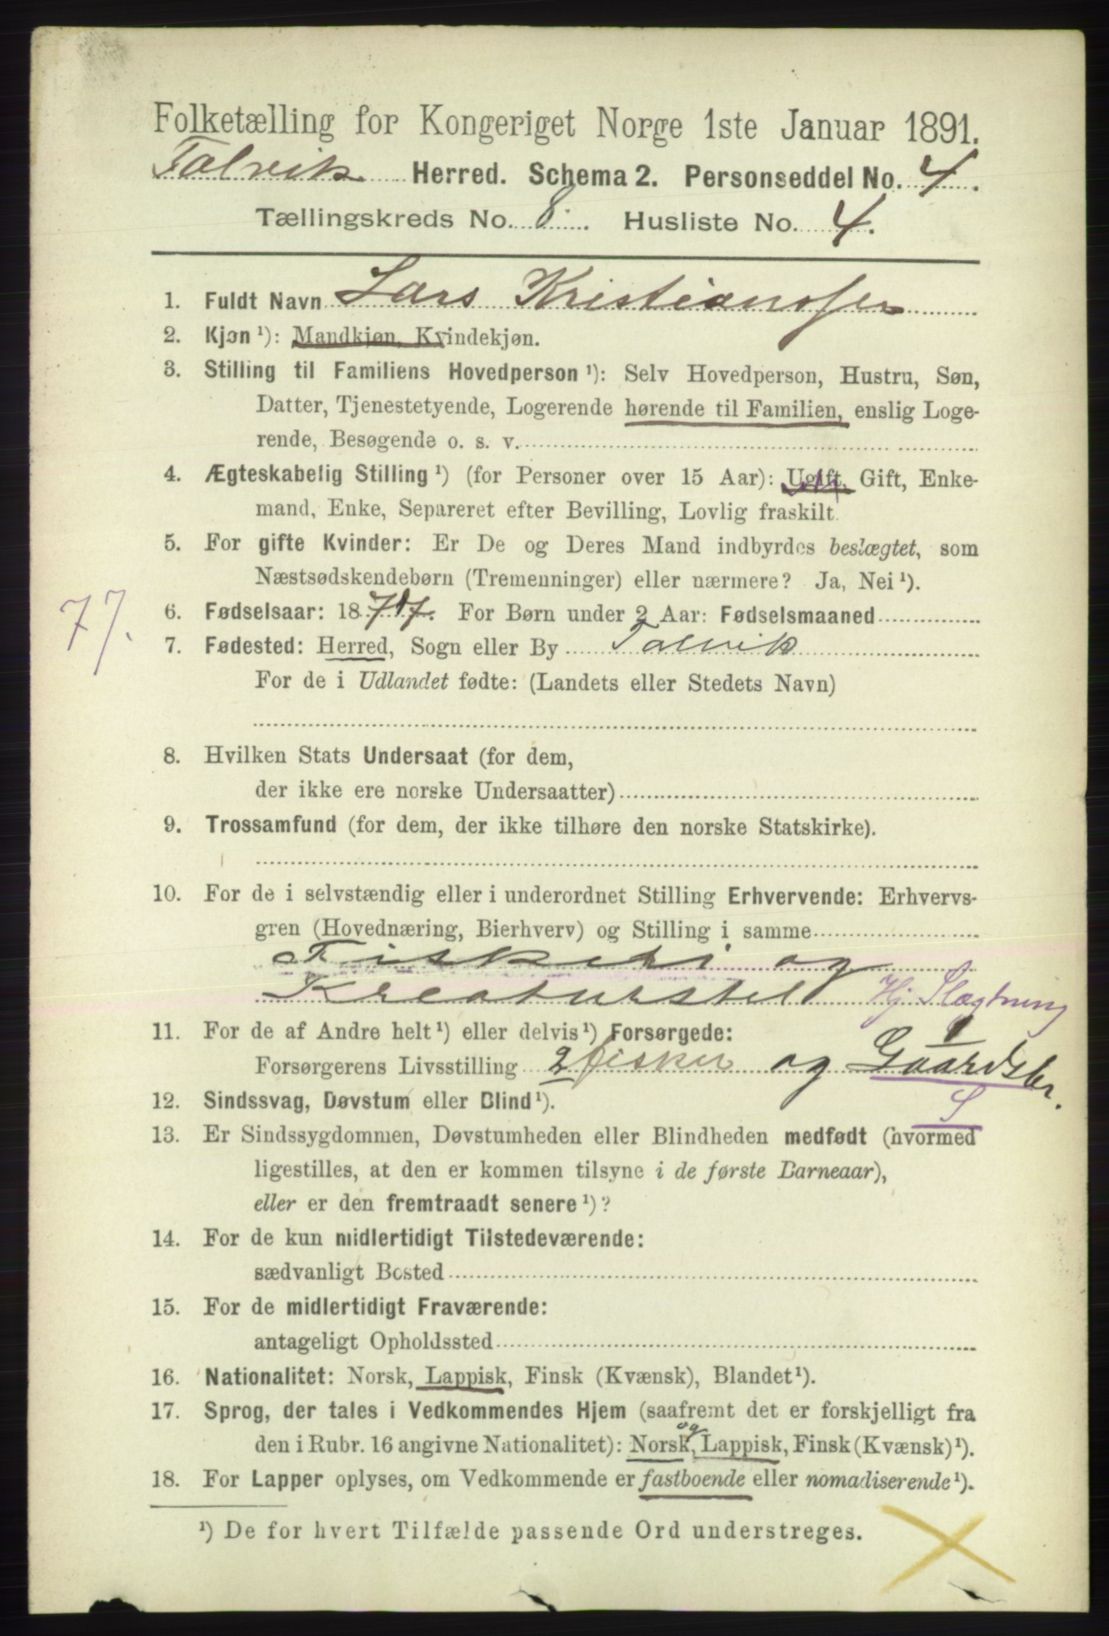 Folketælling for Kongeriget Norge 1ste Januar 1891.
Talvik Herred. Schema 2. Personseddel No. 4.
Tællingskreds No. 8. Husliste No. 4.
1. Fuldt Navn Lars Kristiansen
2. Kjøn ¹): Mandkjøn, Kvindekjøn.
3. Stilling til Familiens Hovedperson ¹): Selv Hovedperson, Hustru, Søn,
Datter, Tjenestetyende, Logerende hørende til Familien, enslig Loge-
rende, Besøgende o. s. v.
4. Ægteskabelig Stilling ¹) (for Personer over 15 Aar): Ugift, Gift, Enke-
mand, Enke, Separeret efter Bevilling, Lovlig fraskilt.
5. For gifte Kvinder: Er De og Deres Mand indbyrdes beslægtet, som
Næstsødskendebørn (Tremenninger) eller nærmere? Ja, Nei ¹).
77.
6. Fødselsaar: 1877. For Børn under 2 Aar: Fødselsmaaned
7. Fødested: Herred, Sogn eller By Talvik
For de i Udlandet fødte: (Landets eller Stedets Navn)
8. Hvilken Stats Undersaat (for dem,
der ikke ere norske Undersaatter)
9. Trossamfund (for dem, der ikke tilhøre den norske Statskirke).
10. For de i selvstændig eller i underordnet Stilling Erhvervende: Erhvervs-
gren (Hovednæring, Bierhverv) og Stilling i samme
Fiskeri og
Kreaturstel Hj. Slægtning
11. For de af Andre helt ¹) eller delvis ¹) Forsørgede:
Forsørgerens Livsstilling 2 fisker og Gaardsbr.
S
12. Sindssvag, Døvstum eller Blind ¹).
13. Er Sindssygdommen, Døvstumheden eller Blindheden medfødt (hvormed
ligestilles, at den er kommen tilsyne i de første Barneaar),
eller er den fremtraadt senere ¹)?
14. For de kun midlertidigt Tilstedeværende:
sædvanligt Bosted
15. For de midlertidigt Fraværende:
antageligt Opholdssted
16. Nationalitet: Norsk, Lappisk, Finsk (Kvænsk), Blandet ¹).
17. Sprog, der tales i Vedkommendes Hjem (saafremt det er forskjelligt fra
den i Rubr. 16 angivne Nationalitet): Norsk, og Lappisk, Finsk (Kvænsk) ¹).
18. For Lapper oplyses, om Vedkommende er fastboende eller nomadiserende ¹).
¹) De for hvert Tilfælde passende Ord understreges.